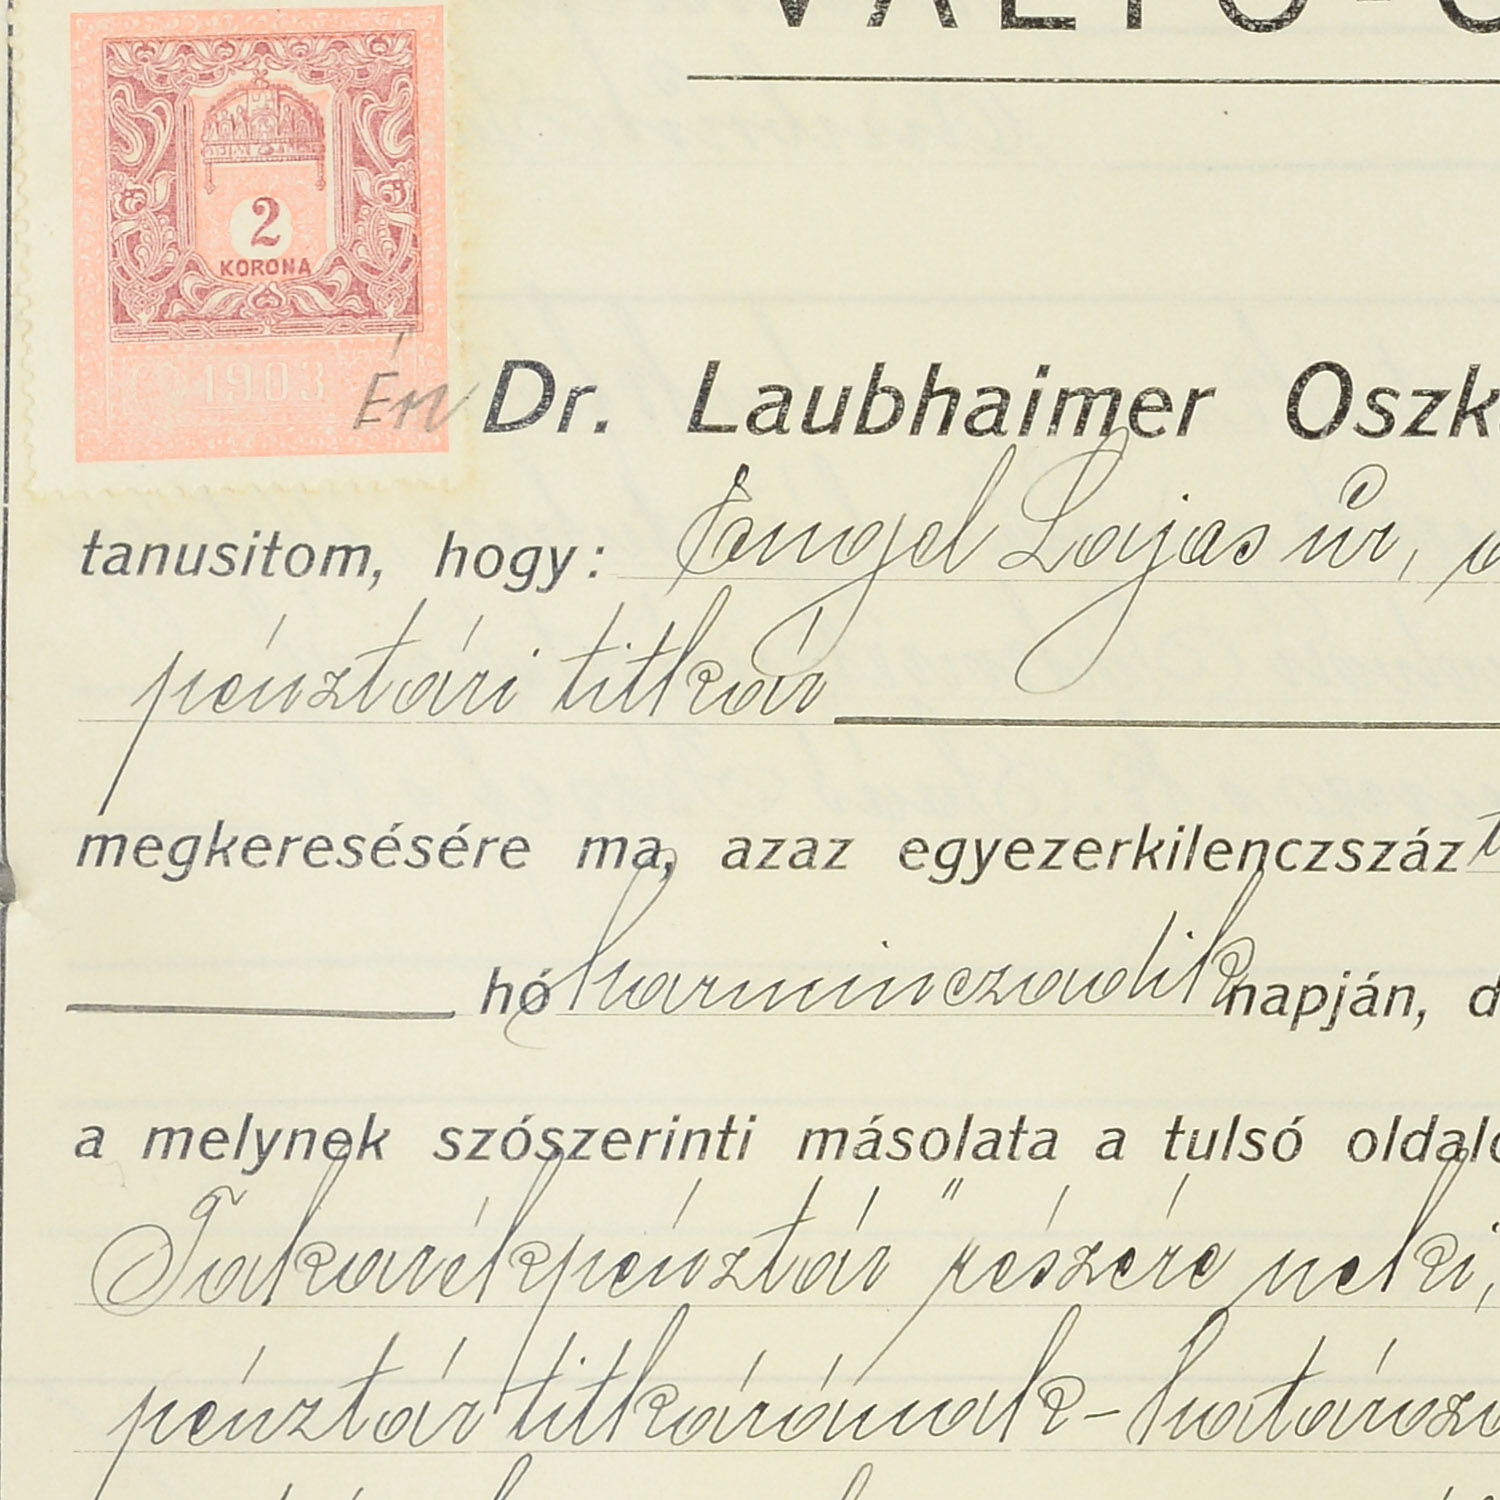 VÁLTÓ-
2
KORONA
1903
Én Dr. Laubhaimer Oszk
tanusitom, hogy: Engel Lajos úr, a
pénztári titkár
megkeresésére ma, azaz egyezerkilenczszáz t
hó harminczadik napján, d
a melynek szószerinti másolata a tulsó oldal
Takarékpénztár" részére neki,
pénztár titkárának - határoz